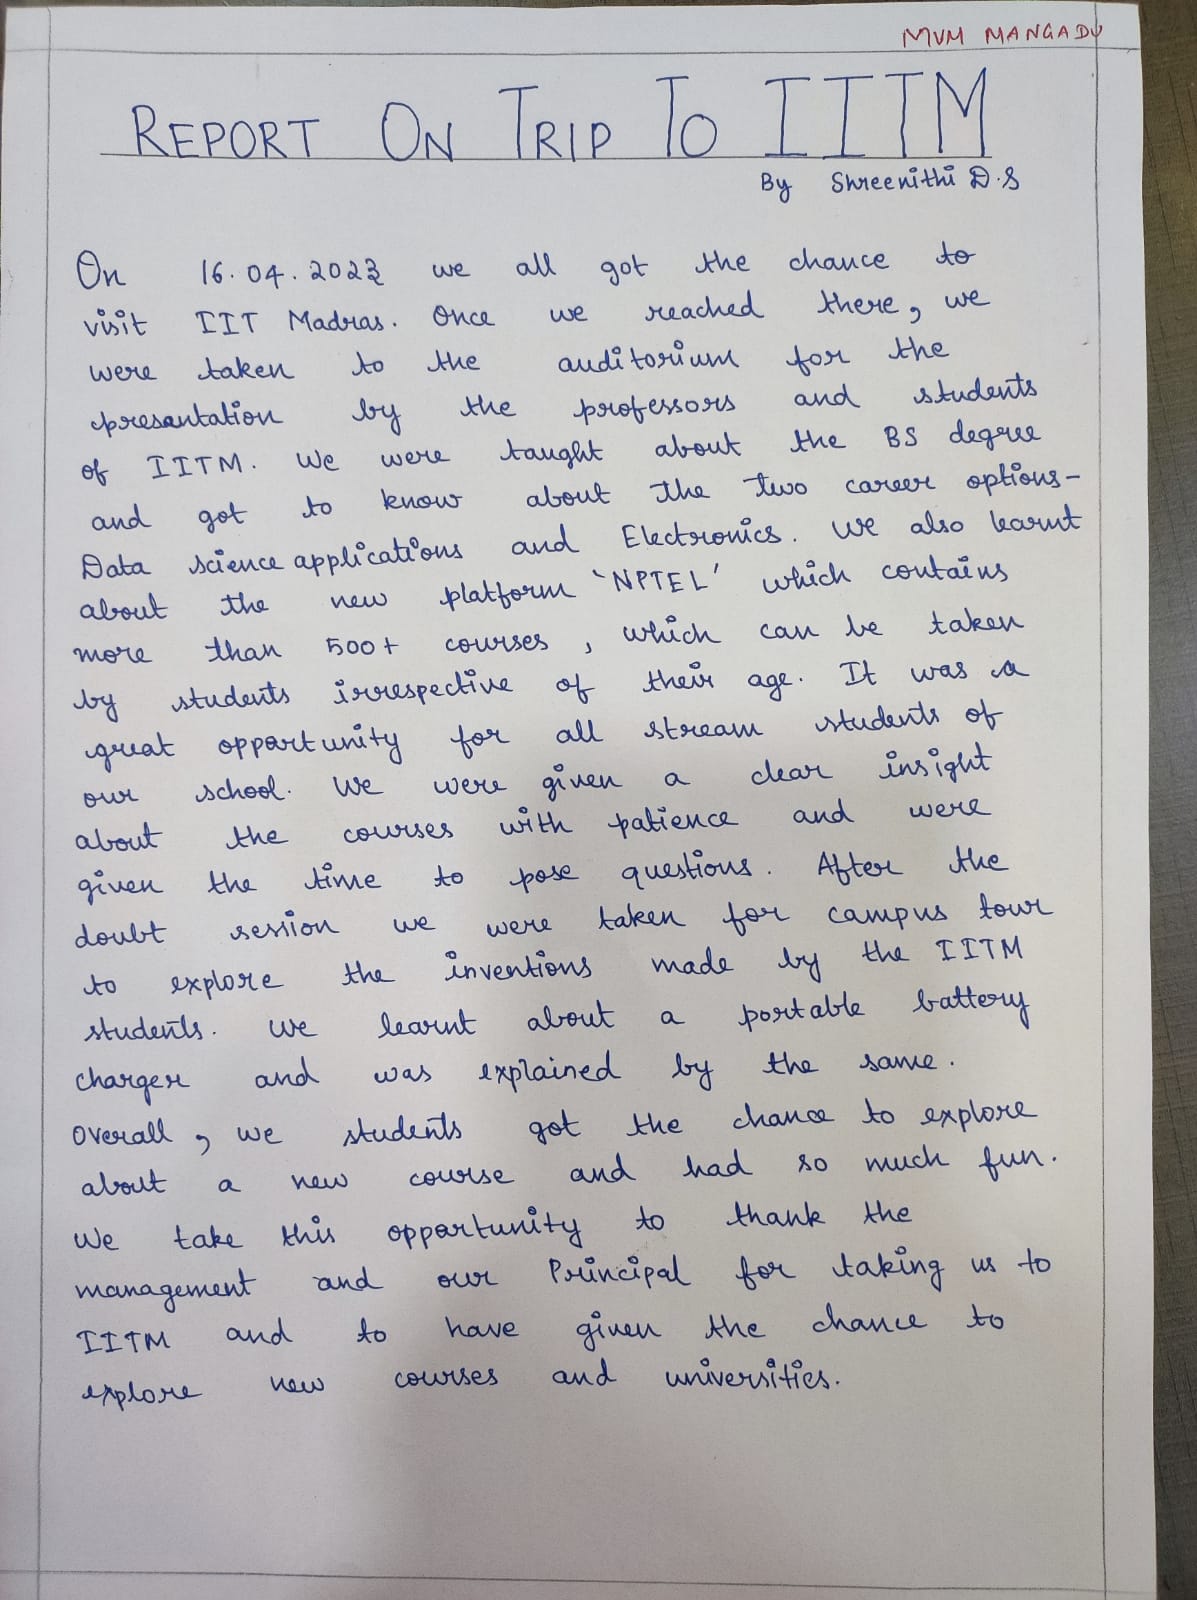 MVM MANGADU
REPORT ON TRIP TO IITM
By Shreenithi D.S
On 16.04.2023 we all got the chance to
visit IIT Madras. Once we reached there, we
were taken to the auditorium for the
presantation by the professors and students
of IITM. We were taught about the BS degree
and got to know about the two career options-
Data science applications and Electronics. We also learnt
about the new platform 'NPTEL' which contains
more than 500+ courses, which can be taken
by students irrespective of their age. It was a
great opportunity for all stream students of
our school. We were given a clear insight
about the courses with patience and were
given the time to pose questions. After the
doubt session we were taken for campus tour
to explore the inventions made by the IITM
students. We learnt about a portable battery
charger and was explained by the same.
Overall, we students got the chance to explore
about a new course and had so much fun.
We take this opportunity to thank the
management and our Principal for taking us to
IITM and to have given the chance to
explore new courses and universities.